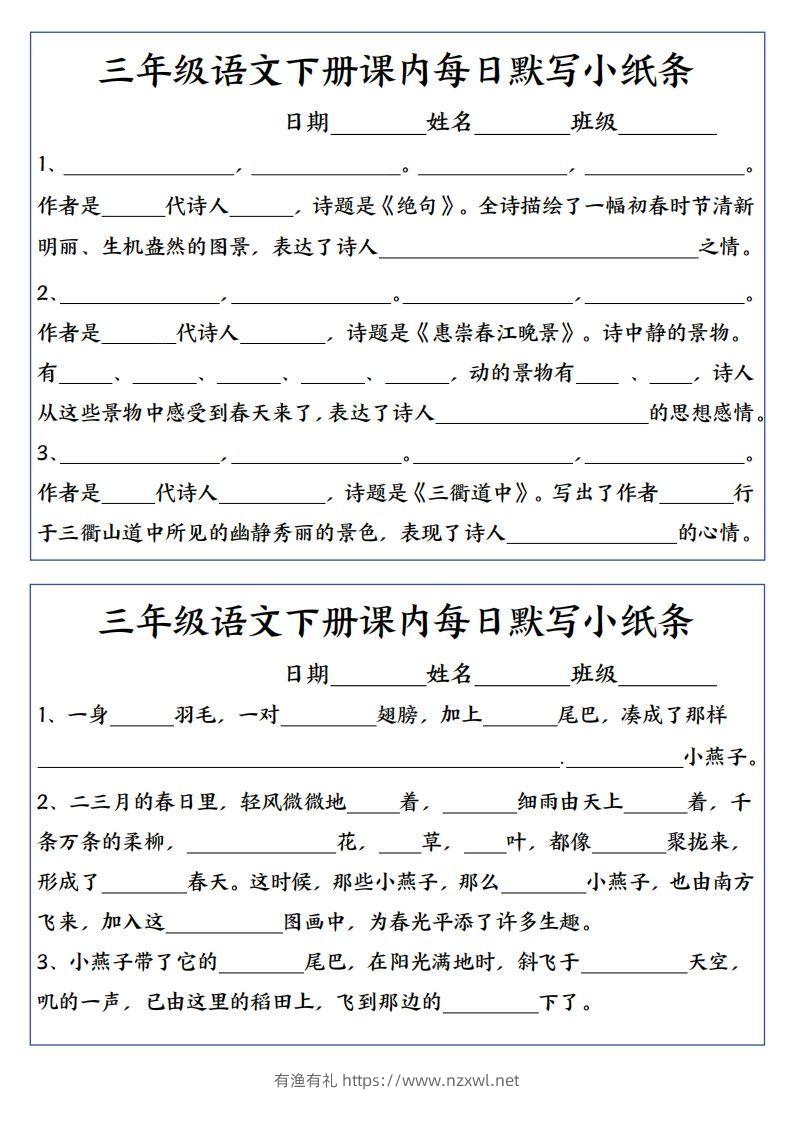 三年级语文下册课内每日默写小纸条
日期________姓名________班级________
1、________________，______________。______________，_______________。
作者是______代诗人______，诗题是《绝句》。全诗描绘了一幅初春时节清新
明丽、生机盎然的图景，表达了诗人______________________________之情。
2、_______________，_______________。________________，_______________。
作者是_______代诗人________，诗题是《惠崇春江晚景》。诗中静的景物。
有_____、______、______、______、______，动的景物有____ 、____，诗人
从这些景物中感受到春天来了,表达了诗人____________________的思想感情。
3、_______________，________________。_______________，_______________。
作者是_____代诗人__________，诗题是《三衢道中》。写出了作者_______行
于三衢山道中所见的幽静秀丽的景色，表现了诗人________________的心情。
三年级语文下册课内每日默写小纸条
日期________姓名________班级________
1、一身______羽毛，一对_________翅膀，加上_______尾巴，凑成了那样
_________________________________________________.___________小燕子。
2、二三月的春日里，轻风微微地_____着，_______细雨由天上______着，千
条万条的柔柳，______________花，____草，____叶，都像_______聚拢来，
形成了________春天。这时候，那些小燕子，那么________小燕子，也由南方
飞来，加入这___________图画中，为春光平添了许多生趣。
3、小燕子带了它的________尾巴，在阳光满地时，斜飞于__________天空，
叽的一声，已由这里的稻田上，飞到那边的_________下了。
有渔有礼 https://www.nzxwl.net